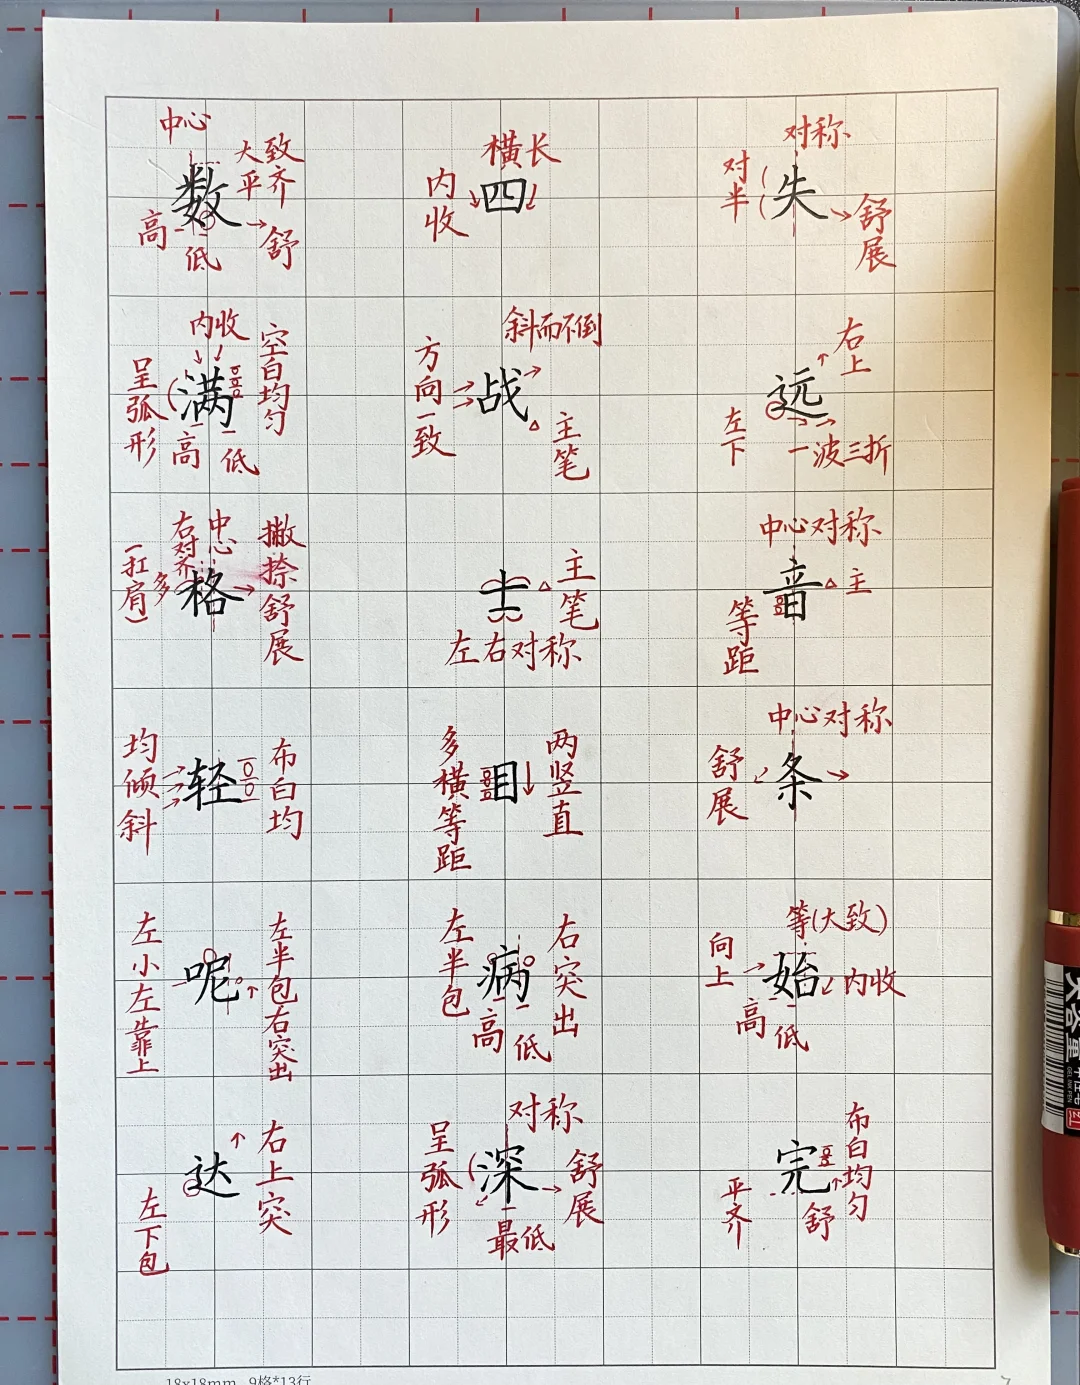 中心
大致
平齐
数
高
低
舒
横长
内收
四
对称
对半
失
舒展
内收
呈弧形
满
空白均匀
高
低
斜而不倒
方向一致
战
主笔
右上
远
左下
一波三折
右对齐
中心
(扛肩)
多
格
撇捺舒展
主笔
左右对称
中心对称
音
主
等距
均倾斜
轻
布白均
多横等距
目
两竖直
中心对称
舒展
条
左小左靠上
呢
左半包右突出
左半包
病
右突出
高
低
等(大致)
向上
始
内收
高
低
达
右上突
左下包
对称
呈弧形
深
舒展
最低
完
布白均匀
平齐
舒
18x18mm 9格*13行
大容量